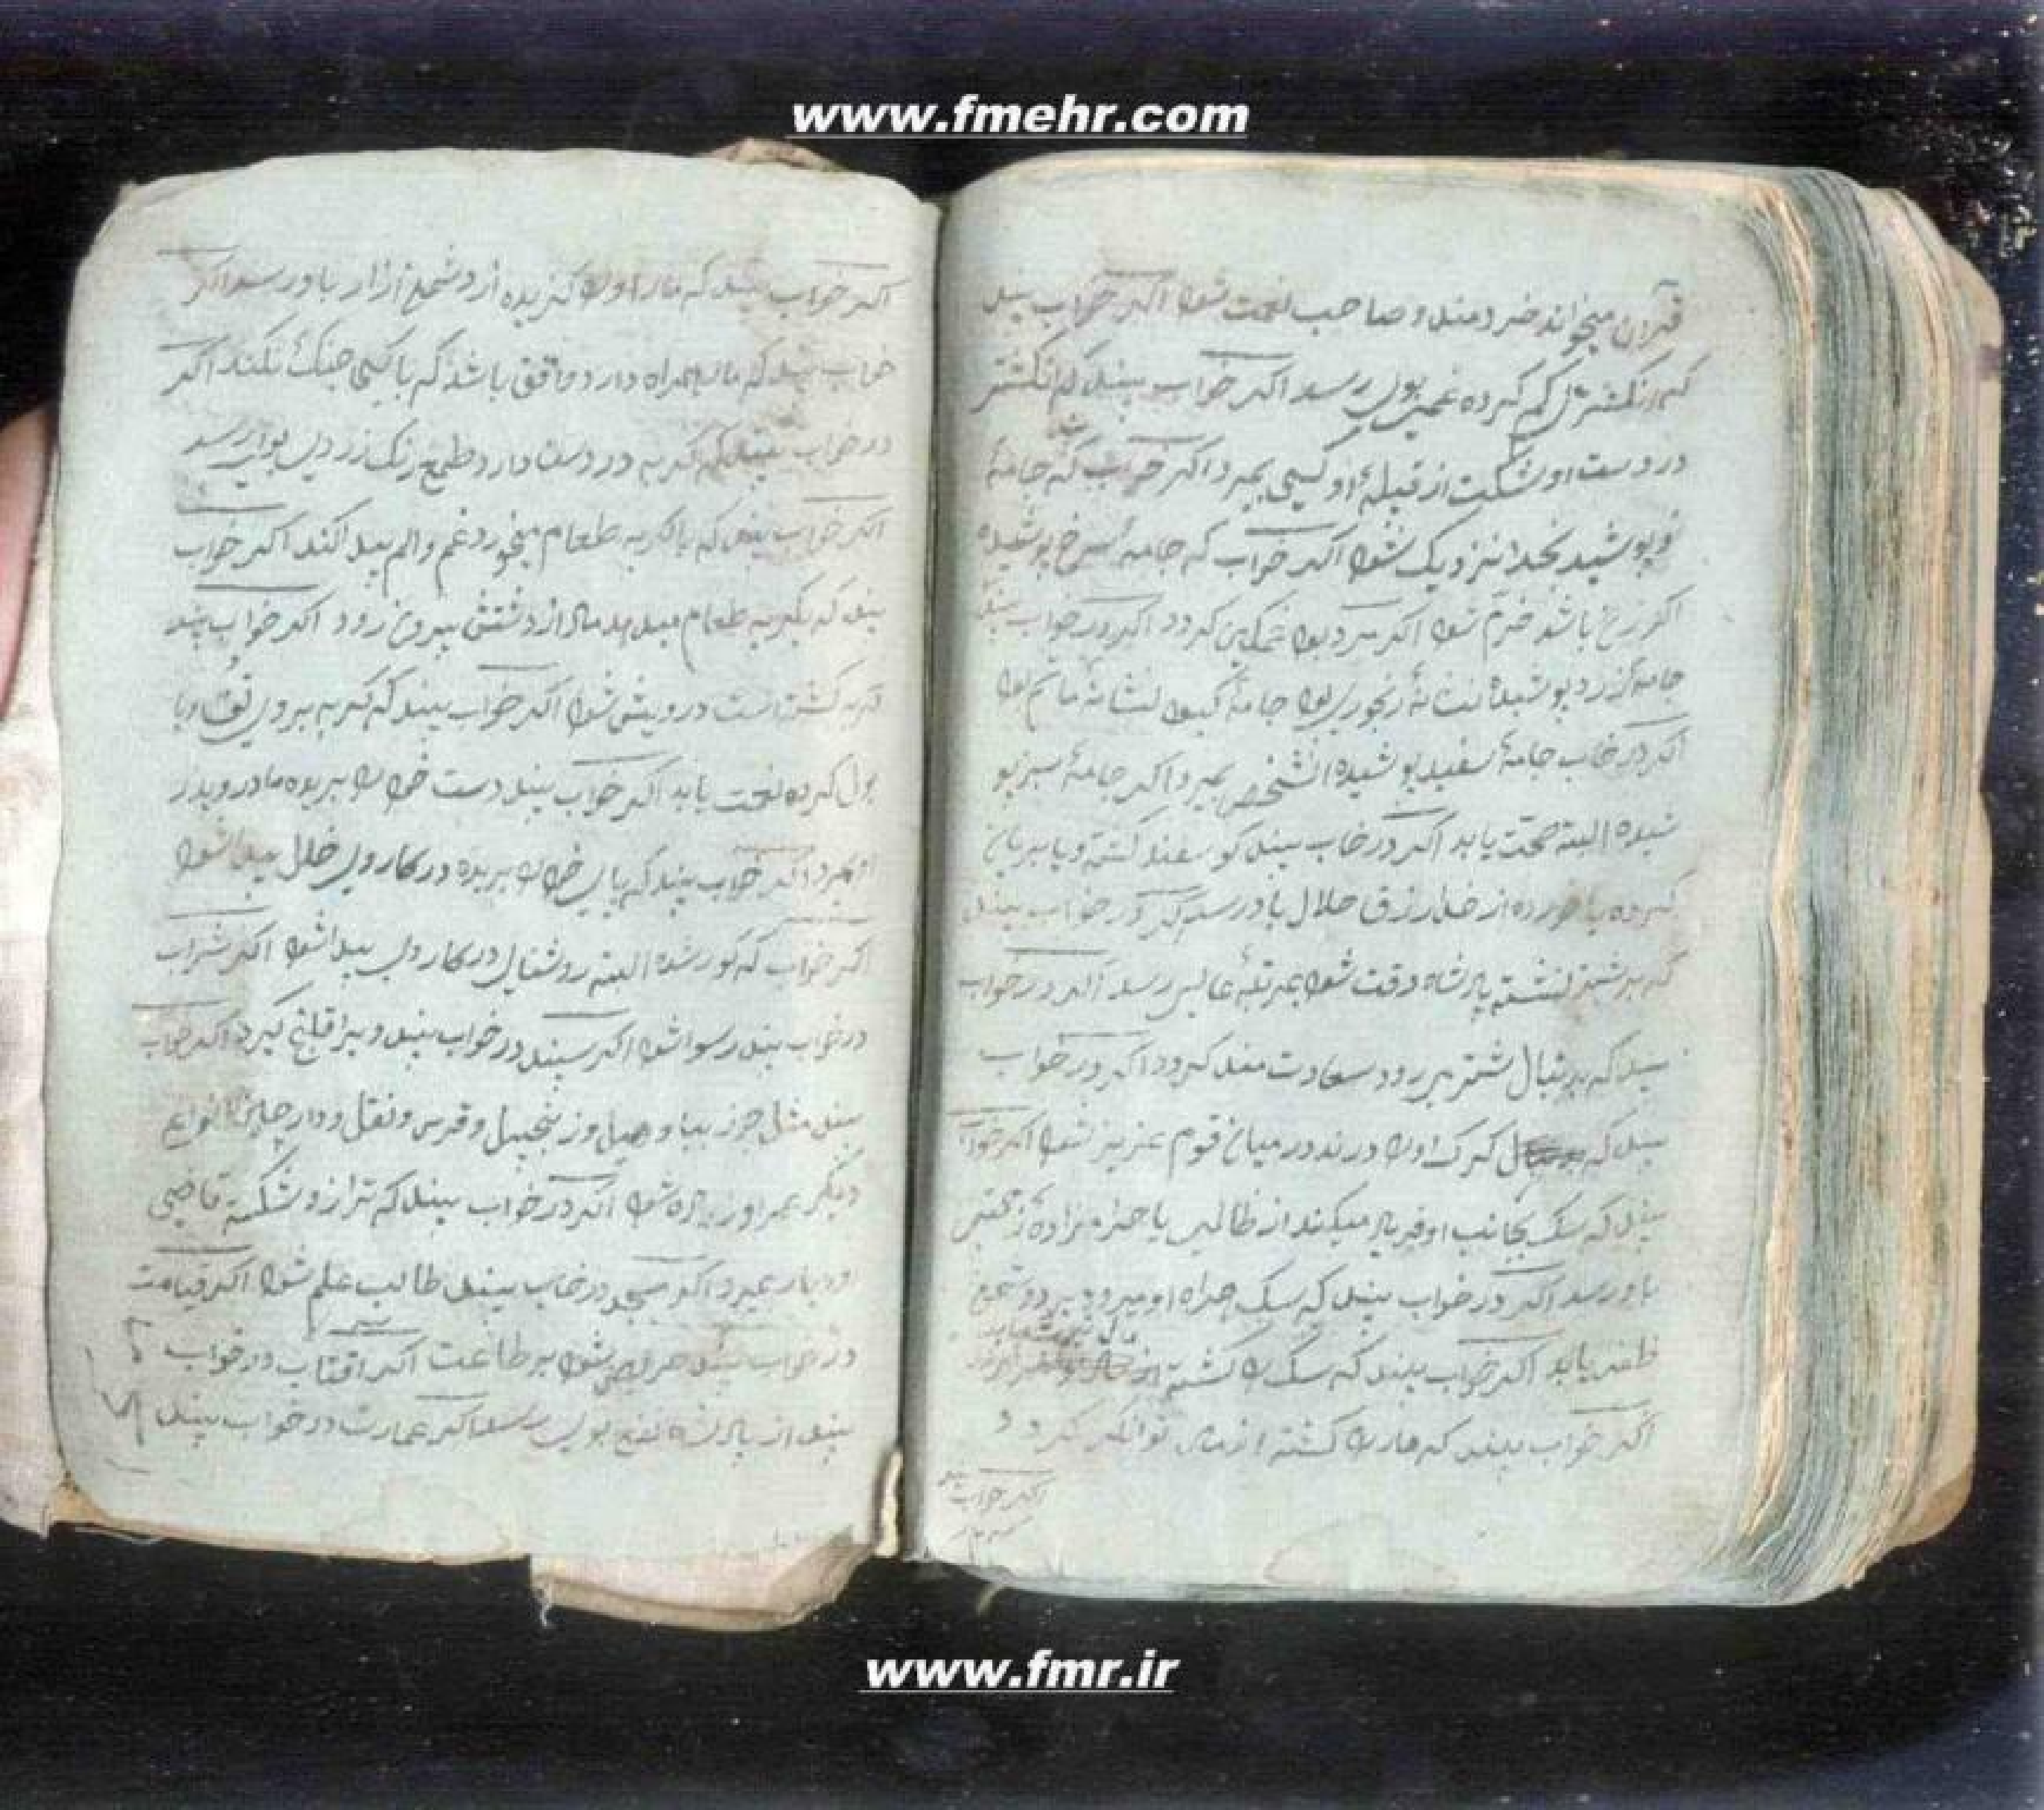 www.fmehr.com
قرآن میخواند خردمند و صاحب نعمت شود اکر خواب بیند
که انکشترش کم کرده غمی بوی رسد اکر خواب بیند که انکشتر
در دست او شکست از قبیلهٔ او کسی بمیرد اکر خواب که جامهٔ
نو پوشید بخدا نزدیک شود اکر خواب که جامهٔ سرخ پوشیده
اکر زن باشد خرم شود اکر مرد بود غمکین کردد اکر در خواب بیند
جامهٔ زرد پوشیده نشانهٔ رنجوری بود جامهٔ کبود نشانهٔ ماتم بود
اکر در خاب جامهٔ سفید پوشیده انشخص بمیرد اکر جامهٔ سبز پو
شیده البته صحت یابد اکر در خاب بیند کوسفند کشته و یا بریان
کرده یا خورده از خدا رزق حلال باو رسد اکر در خواب بیند
که بر شتر نشسته پادشاه وقت شود بمرتبهٔ عالی رسد اکر در خواب
بیند که بدنبال شتر میرود سعادت مند کردد اکر در خواب
بیند که کرک اورا درند در میان قوم عزیز شود اکر خواب
بیند که سک بجانب او فریاد میکند از ظالمی یا حرامزاده
باو رسد اکر در خواب بیند که سک همراه او میرود بر دشمن
ظفر یابد اکر خواب بیند که سک را کشته از
اکر خواب بیند که مار را کشته از مال توانکر کردد
اکر خواب
اکر خواب بیند که مار اورا کزیده از دشمن ازار باو رسد اکر
خواب بیند که مار همراه دارد واقف باشد که با کسی جنک نکند اکر
در خواب بیند که کربه در دست دارد زردی بوی رسد
اکر خواب بیند که با کربه طعام میخورد غم و الم پیدا کند اکر خواب
بیند که بکربه طعام میدهد مال از دستش بیرون رود اکر خواب بیند
کربه کشته است درویش شود اکر خواب بیند که کربه بروی تف و یا
بول کرده نعمت یابد اکر خواب بیند دست خود را بریده مادر و پدر
او بمیرد اکر خواب بیند که پای خود را بریده در کار وی خلل پیدا شود
اکر خواب که کور شده البته روشنایی در کار وی پیدا شود اکر شراب
در خواب بیند رسوا شود اکر سپند در خواب بیند ویرا فلنج کیرد اکر خواب
بیند مثل جوز بیا و هیل و زنجبیل و قرس و نقل و دارچینی انواع
دیکر در خواب بیند که ترازو شکسته قاضی
بمیرد اکر مسجد در خاب بیند طالب علم شود اکر قیامت
در خواب بیند حریص شود بر طاعت اکر افتاب در خواب
بیند از پادشاه نفع بوی رسد اکر عمارت در خواب بیند
www.fmr.ir